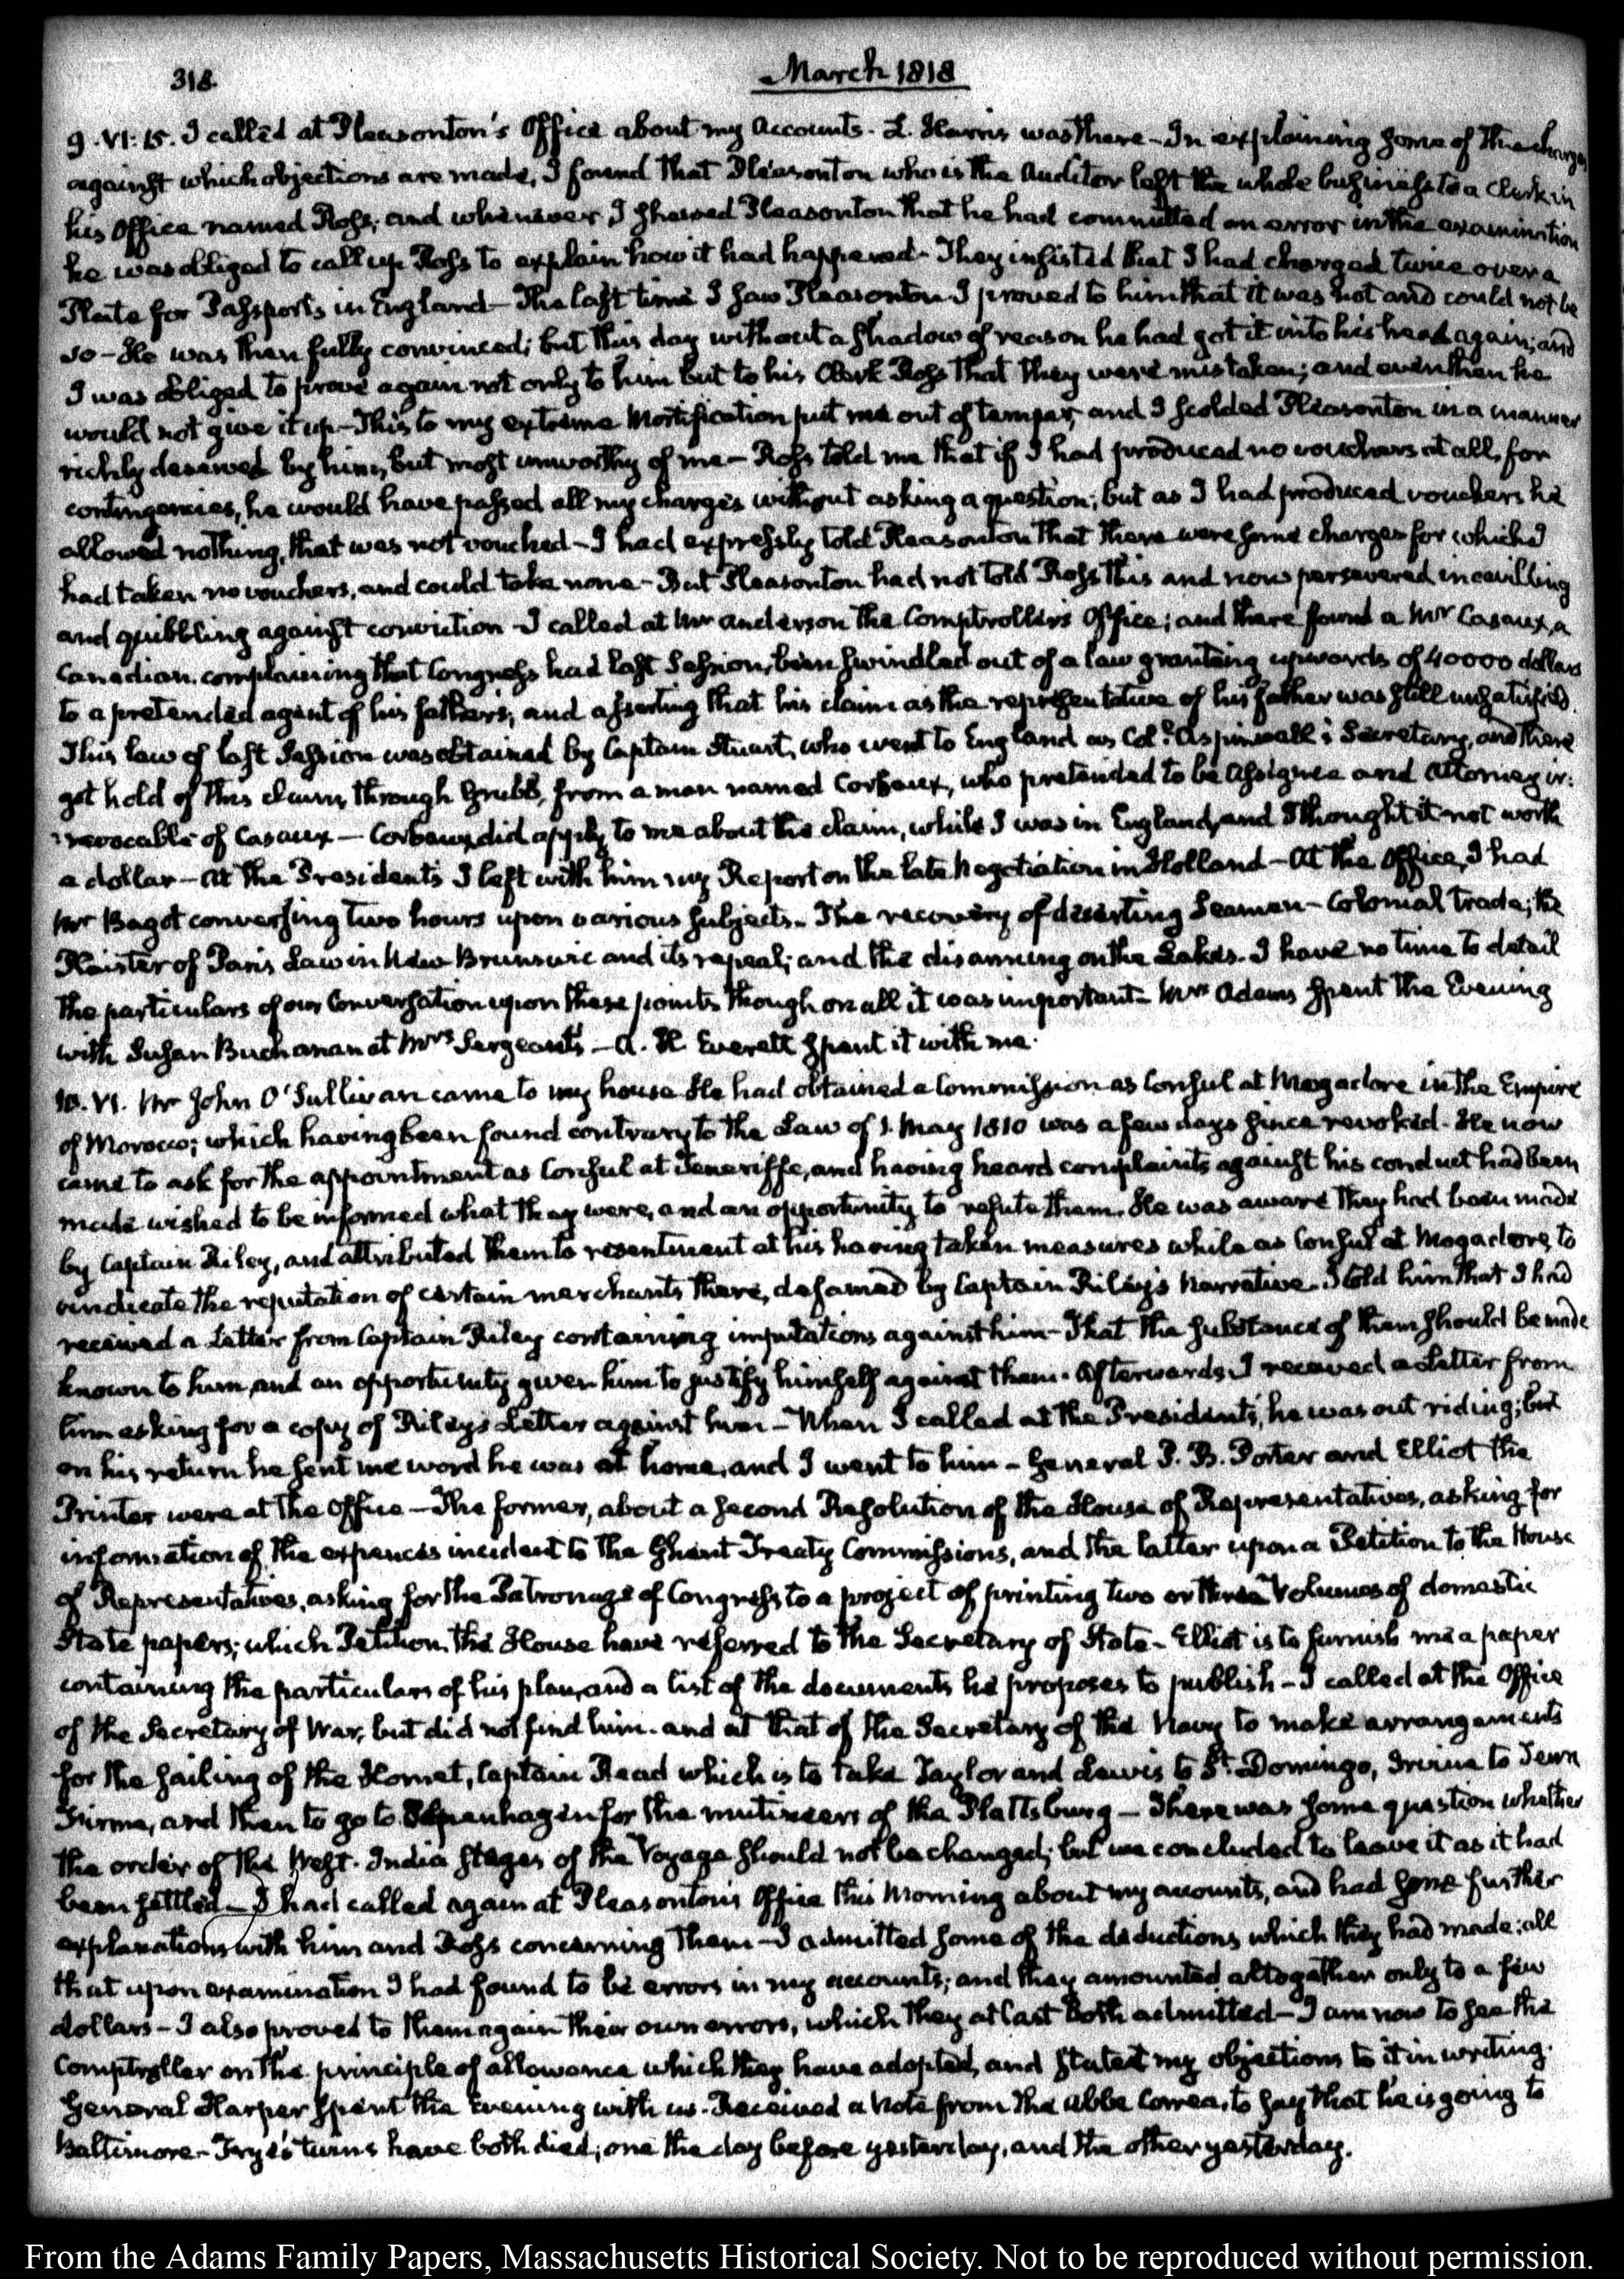 318.
March 1818
9. VI: 15. I called at Pleasonton's Office about my Accounts. L. Harris was there - In explaining some of the charges
against which objections are made, I found that Pleasonton who is the Auditor left the whole business to a Clerk in
his Office named Ross; and whenever I shewed Pleasonton that he had committed an error in the examination
he was obliged to call up Ross to explain how it had happened - They insisted that I had charged twice over a
Plate for Passports in England - The last time I saw Pleasonton I proved to him that it was not and could not be
so - He was then fully convinced; but this day without a shadow of reason he had got it into his head again; and
I was obliged to prove again not only to him but to his Clerk Ross that they were mistaken; and even then he
would not give it up - This to my extreme Mortification put me out of temper, and I scolded Pleasonton in a manner
richly deserved by him, but most unworthy of me - Ross told me that if I had produced no vouchers at all, for
contingencies, he would have passed all my charges without asking a question; but as I had produced vouchers he
allowed nothing, that was not vouched - I had expressly told Pleasonton that there were some charges for which I
had taken no vouchers, and could take none - But Pleasonton had not told Ross this and now persevered in cavilling
and quibbling against conviction - I called at Mr Anderson the Comptroller's Office; and there found a Mr Casaux, a
Canadian, complaining that Congress had last Session, been swindled out of a law granting upwards of 40000 dollars
to a pretended agent of his father's, and asserting that his claim as the representative of his father was still unsatisfied.
This law of last Session was obtained by Captain Stuart, who went to England as Coll. Aspinwall's Secretary, and there
got hold of this claim, through Grubb, from a man named Corbaux, who pretended to be Assignee and Attorney ir:
:revocable of Casaux - Corbaux did apply to me about the claim, while I was in England, and I thought it not worth
a dollar - At the President's I left with him my Report on the late Negotiation in Holland - At the Office, I had
Mr Bagot conversing two hours upon various subjects. The recovery of deserting Seamen - Colonial trade; the
Plaister of Paris Law in New Brunswic and its repeal; and the disarming on the Lakes. I have no time to detail
the particulars of our Conversation upon these points though on all it was important - Mrs Adams spent the Evening
with Susan Buchanan at Mrs Sergeant's - A. H. Everett spent it with me.
10. VI. Mr John O'Sullivan came to my house He had obtained a Commission as Consul at Mogadore in the Empire
of Morocco; which having been found contrary to the Law of 1. May 1810 was a few days since revoked. He now
came to ask for the appointment as Consul at Teneriffe, and having heard complaints against his conduct had been
made wished to be informed what they were, and an opportunity to refute them. He was aware they had been made
by Captain Riley, and attributed them to resentment at his having taken measures while as Consul at Mogadore, to
vindicate the reputation of certain merchants there, defamed by Captain Riley's Narrative. I told him that I had
received a Letter from Captain Riley containing imputations against him - That the substance of them should be made
known to him, and an opportunity given him to justify himself against them. Afterwards, I received a Letter from
him asking for a copy of Riley's Letter against him - When I called at the President's, he was out riding; but
on his return he sent me word he was at home, and I went to him - General P. B. Porter and Elliot the
Printer were at the Office - The former, about a second Resolution of the House of Representatives, asking for
information of the expences incident to the Ghent Treaty Commissions, and the latter upon a Petition to the House
of Representatives, asking for the Patronage of Congress, to a project of printing two or three Volumes of domestic
State papers; which Petition the House have referred to the Secretary of State - Elliot is to furnish me a paper
containing the particulars of his plan, and a list of the documents he proposes to publish - I called at the Office
of the Secretary of War, but did not find him. and at that of the Secretary of the Navy to make arrangements
for the sailing of the Hornet, Captain Read which is to take Taylor and Lewis to St. Domingo, Irvine to Terra
Firma, and then to go to Copenhagen for the mutineers of the Plattsburg - There was some question whether
the order of the West-India stages of the Voyage should not be changed; but we concluded to leave it as it had
been settled - I had called again at Pleasonton's Office this Morning about my accounts, and had some further
explanations with him and Ross concerning them - I admitted some of the deductions which they had made: all
that upon examination I had found to be errors in my accounts; and they amounted altogether only to a few
dollars - I also proved to them again their own errors, which they at last both admitted - I am now to see the
Comptroller on the principle of allowance which they have adopted, and stated my objections to it in writing.
General Harper spent the Evening with us. Received a Note from the Abbé Correa, to say that he is going to
Baltimore - Frye's twins have both died; one the day before yesterday, and the other yesterday.
From the Adams Family Papers, Massachusetts Historical Society. Not to be reproduced without permission.